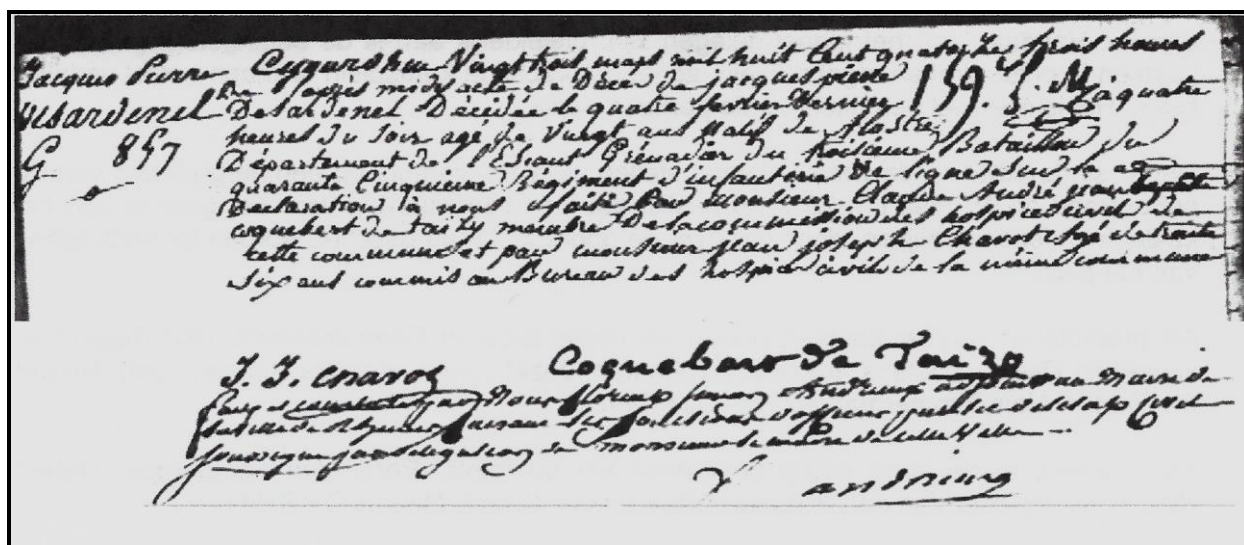 Jacques Pierre
Desardenel
G 857
Cejourdhui Vingt trois mars mil huit Cent quatorze trois heures
De Relevée après midi acte de Décès de jacques pierre
Desardenel Décédée le quatre fevrier dernier 159. à quatre
heures du soir agé de Vingt ans Natif de
Département de l'Escaut Grénadier du troisieme Bataillon du
quarante Cinquieme Régiment d'infanterie de ligne sur la
Declaration à nous faite Par monsieur Claude André jean baptiste
coquebert de taizy membre De la commission des hospices civils de
cette commune et par monsieur jean joseph Chavot agé de trente
six ans commis au Bureau des hospices civils de la même commune
J. J. Chavot
Coquebert de Taizy
Constaté par Nous Simon Andrieux adjoint au Maire de
la Ville de faisant les fonctions d'officier public de l'etat Civil
soussigné par délégation de monsieur le maire de cette Ville
andrieux